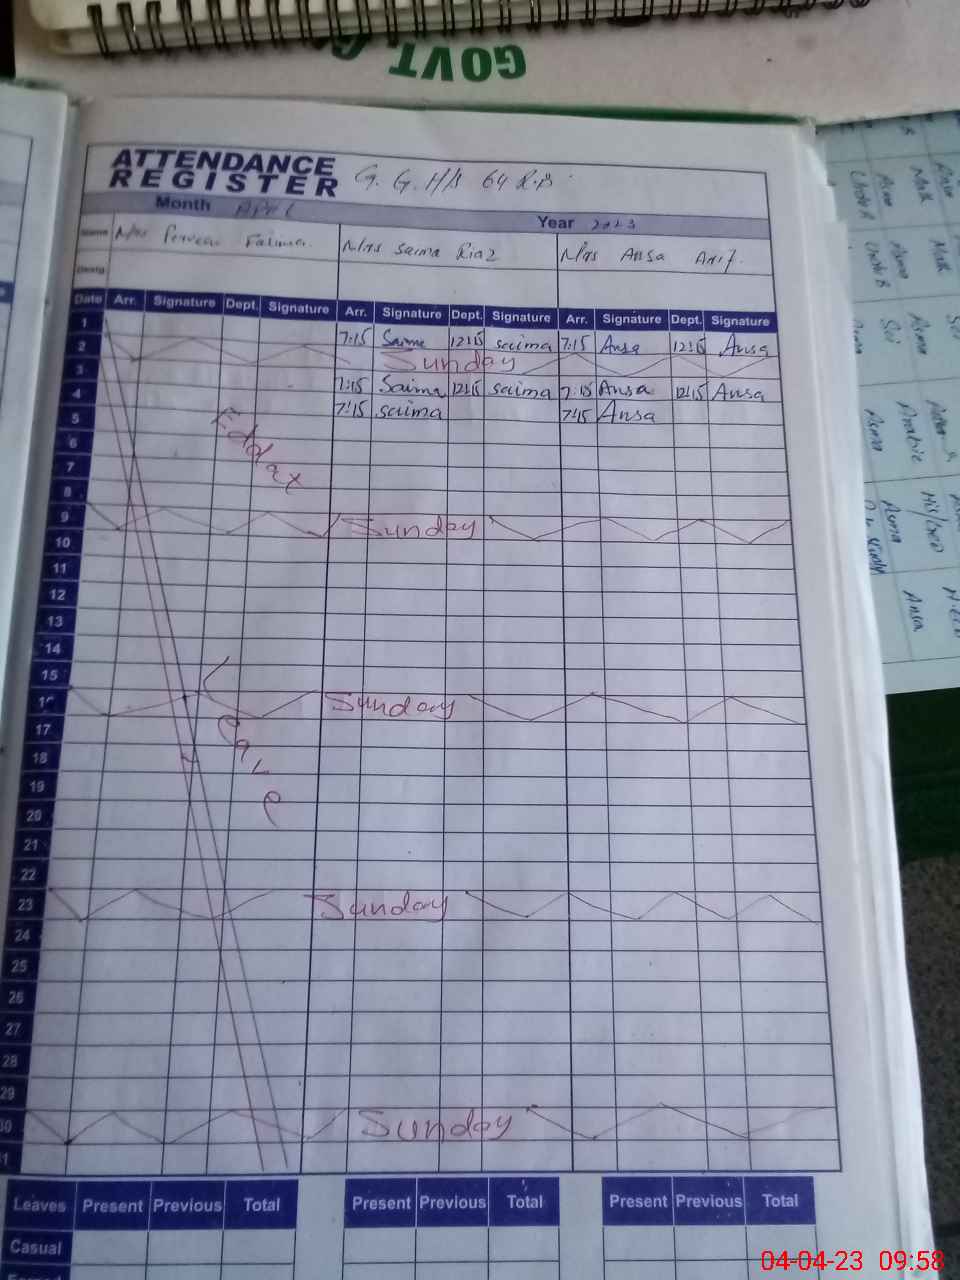 GOVT
ATTENDANCE
REGISTER
G. G. H/S 64 R.B
Month APRIL Year 2023
Name Mrs Perveen Fatima Mrs Saima Riaz Mrs Ansa Arif.
Desig
Date Arr. Signature Dept. Signature Arr. Signature Dept. Signature Arr. Signature Dept. Signature
1 7:15 Saima 12:15 saima 7:15 Ansa 12:15 Ansa
2 Sunday
3 7:15 Saima 12:15 saima 7:15 Ansa 12:15 Ansa
4 7:15 saima 7:15 Ansa
5
6
7
8
9 Sunday
10
11
12
13
14
15
16 Sunday
17
18
19
20
21
22
23 Sunday
24
25
26
27
28
29
30 Sunday
31
Leave
Leaves Present Previous Total Present Previous Total Present Previous Total
Casual
04-04-23 09:58